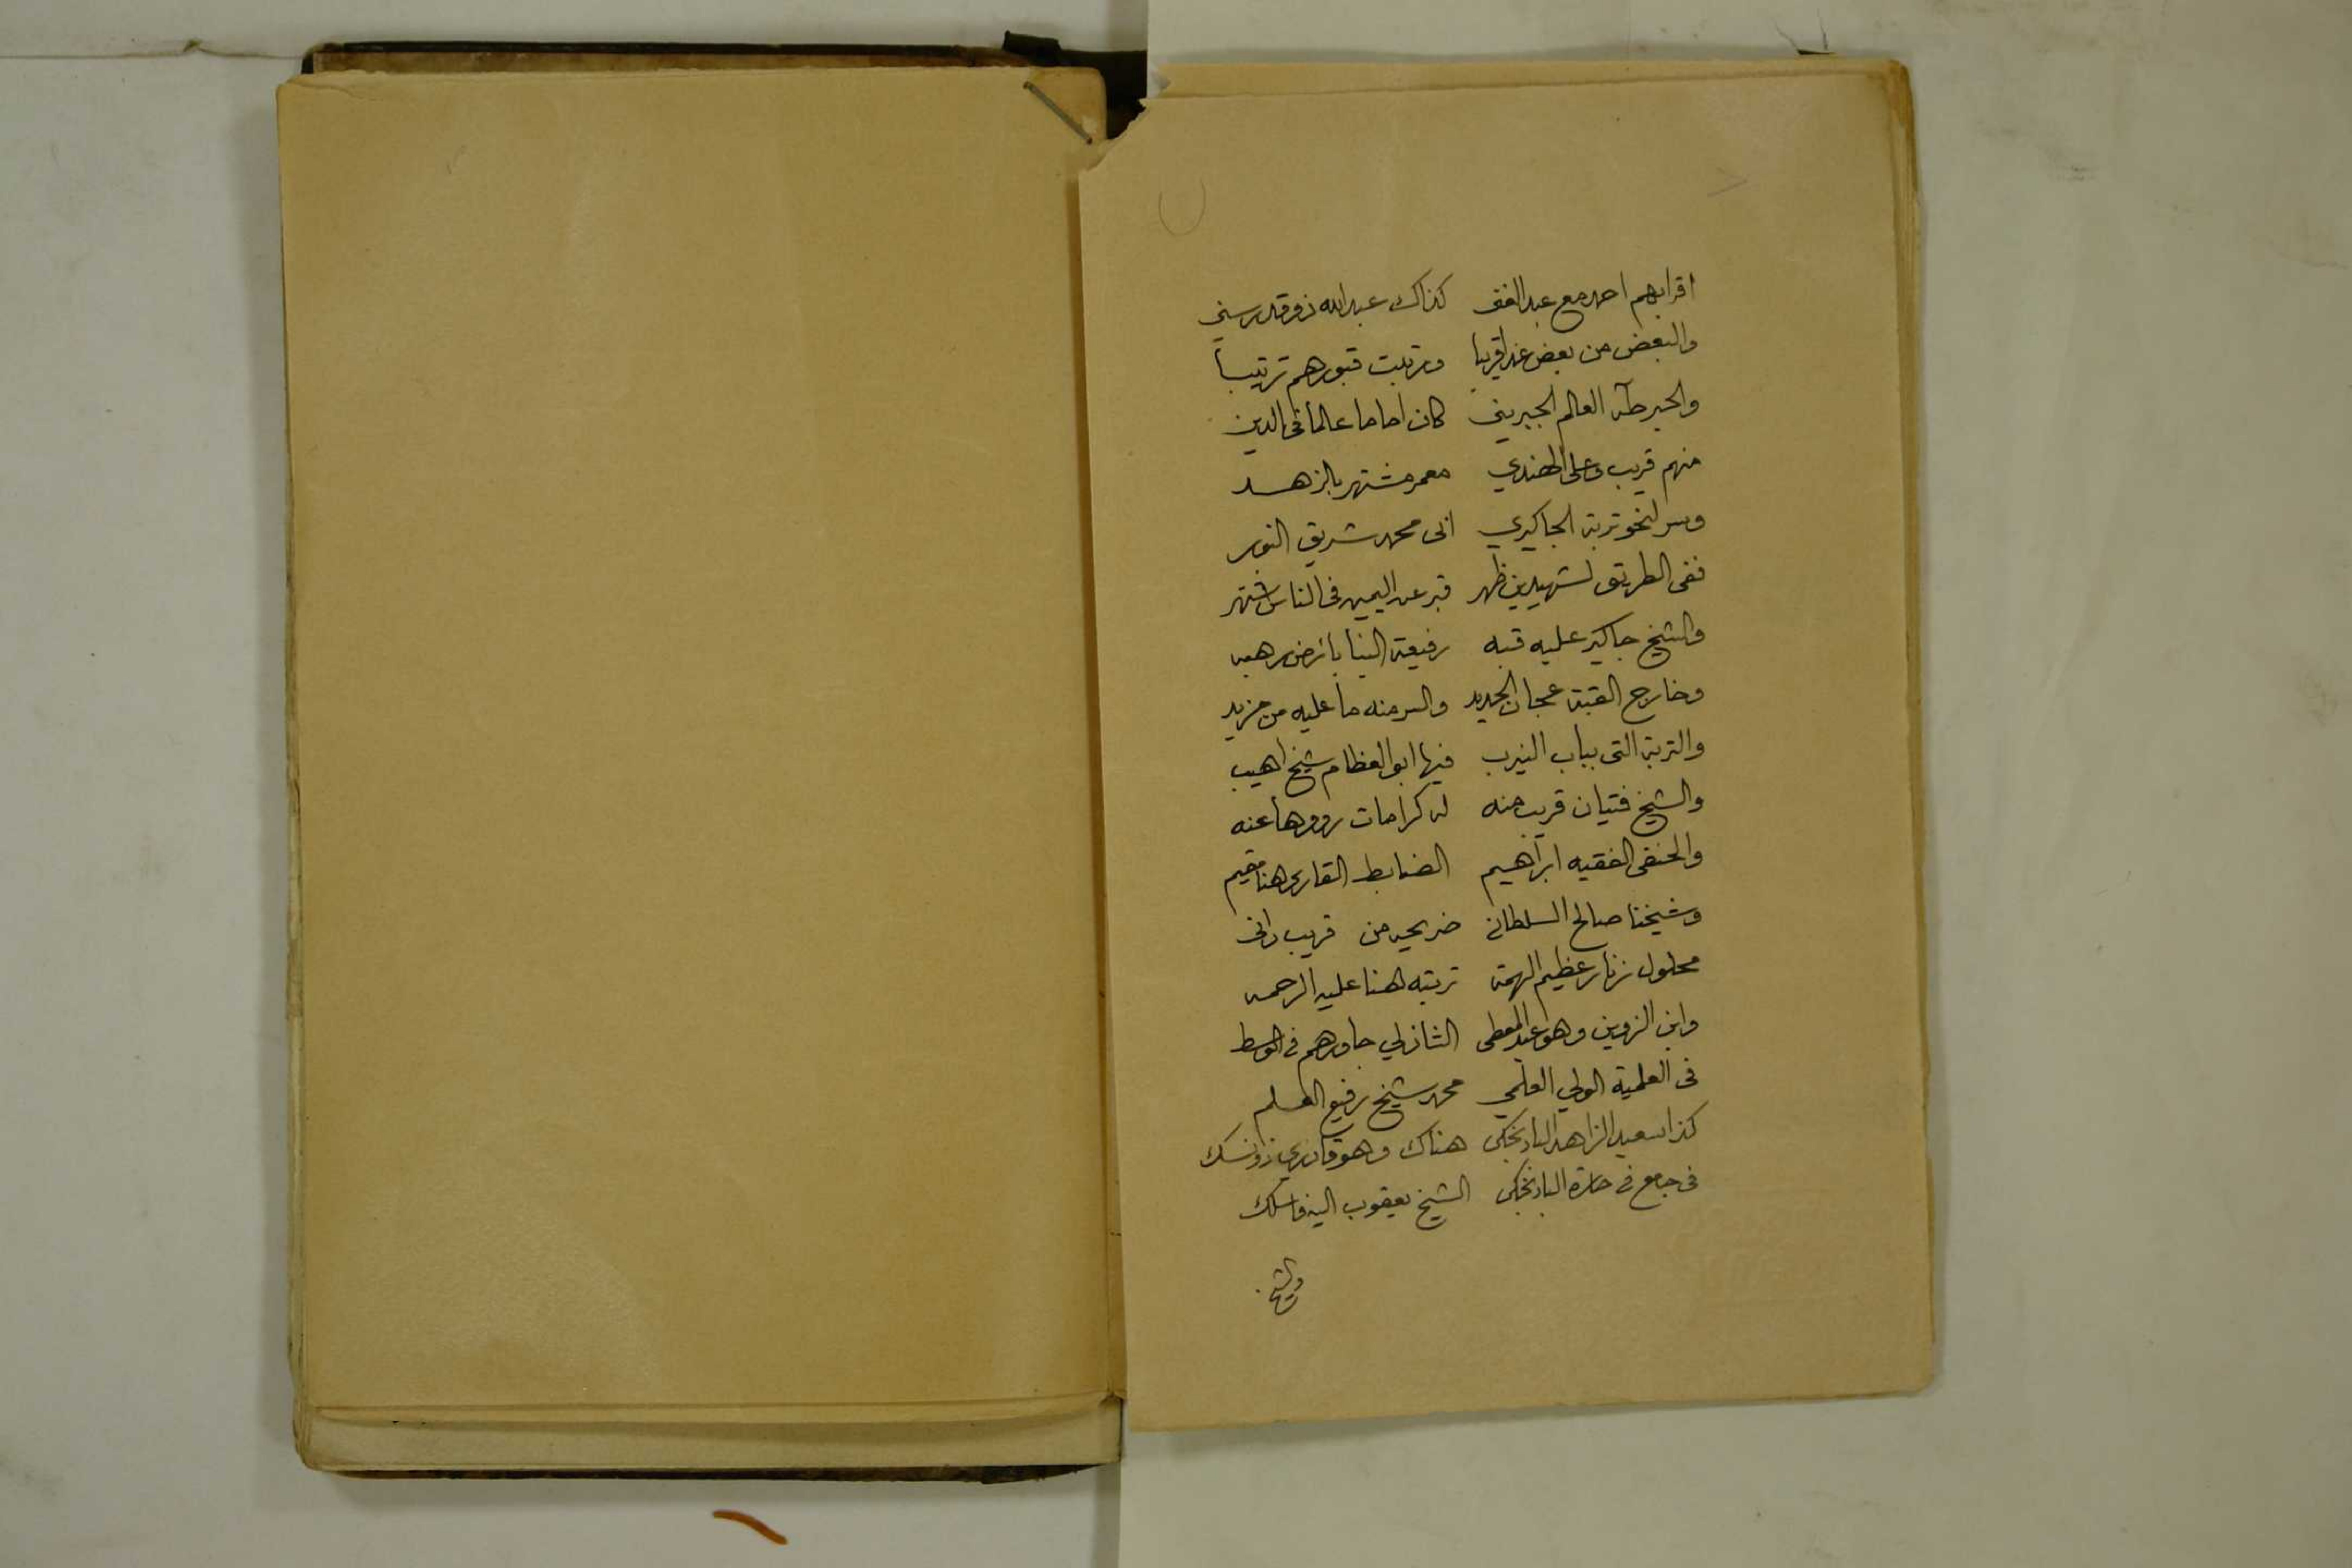 اقرابهم احمد مع عبد الغنى كذاك عبد الله ذو قدر سني
والبعض من بعض غدا قريبا ورتبت قبورهم ترتيبا
والحبر طه العالم الجبريني كان اماما عالما في الدين
منهم قريب وعلي الهندي معمر مشتهر بالزهد
وسر لنحو تربة الجاكيري اى محمد شريق النور
ففى الطريق لشهيدين ظهر قبر عن اليمين فى الناس اشتهر
والشيخ جاكير عليه قبه رفيعة البنا بارض رحبه
وخارج القبة عجان الحديد والسر منه ما عليه من مزيد
والتربة التى بباب النيرب فيها ابو العظام شيخ اهيب
والشيخ فتيان قريب منه له كرامات رووها عنه
والحنفى الفقيه ابراهيم الضابط القارى هنا مقيم
وشيخنا صالح السلطانى ضريحه من قريب دانى
محلول زنار عظيم الهمة تربته هنا عليه الرحمه
وابن الزوين وهو عبد المعطى الشاذلي جاورهم فى الوسط
فى العلمية الولي العلمي محمد شيخ رفيع العلم
كذا سعيد الزاهد البادنجكى هناك وهو قادري ذو نسك
فى جامع فى حارة البادنجكى الشيخ يعقوب اليه فاسلك
والشيخ